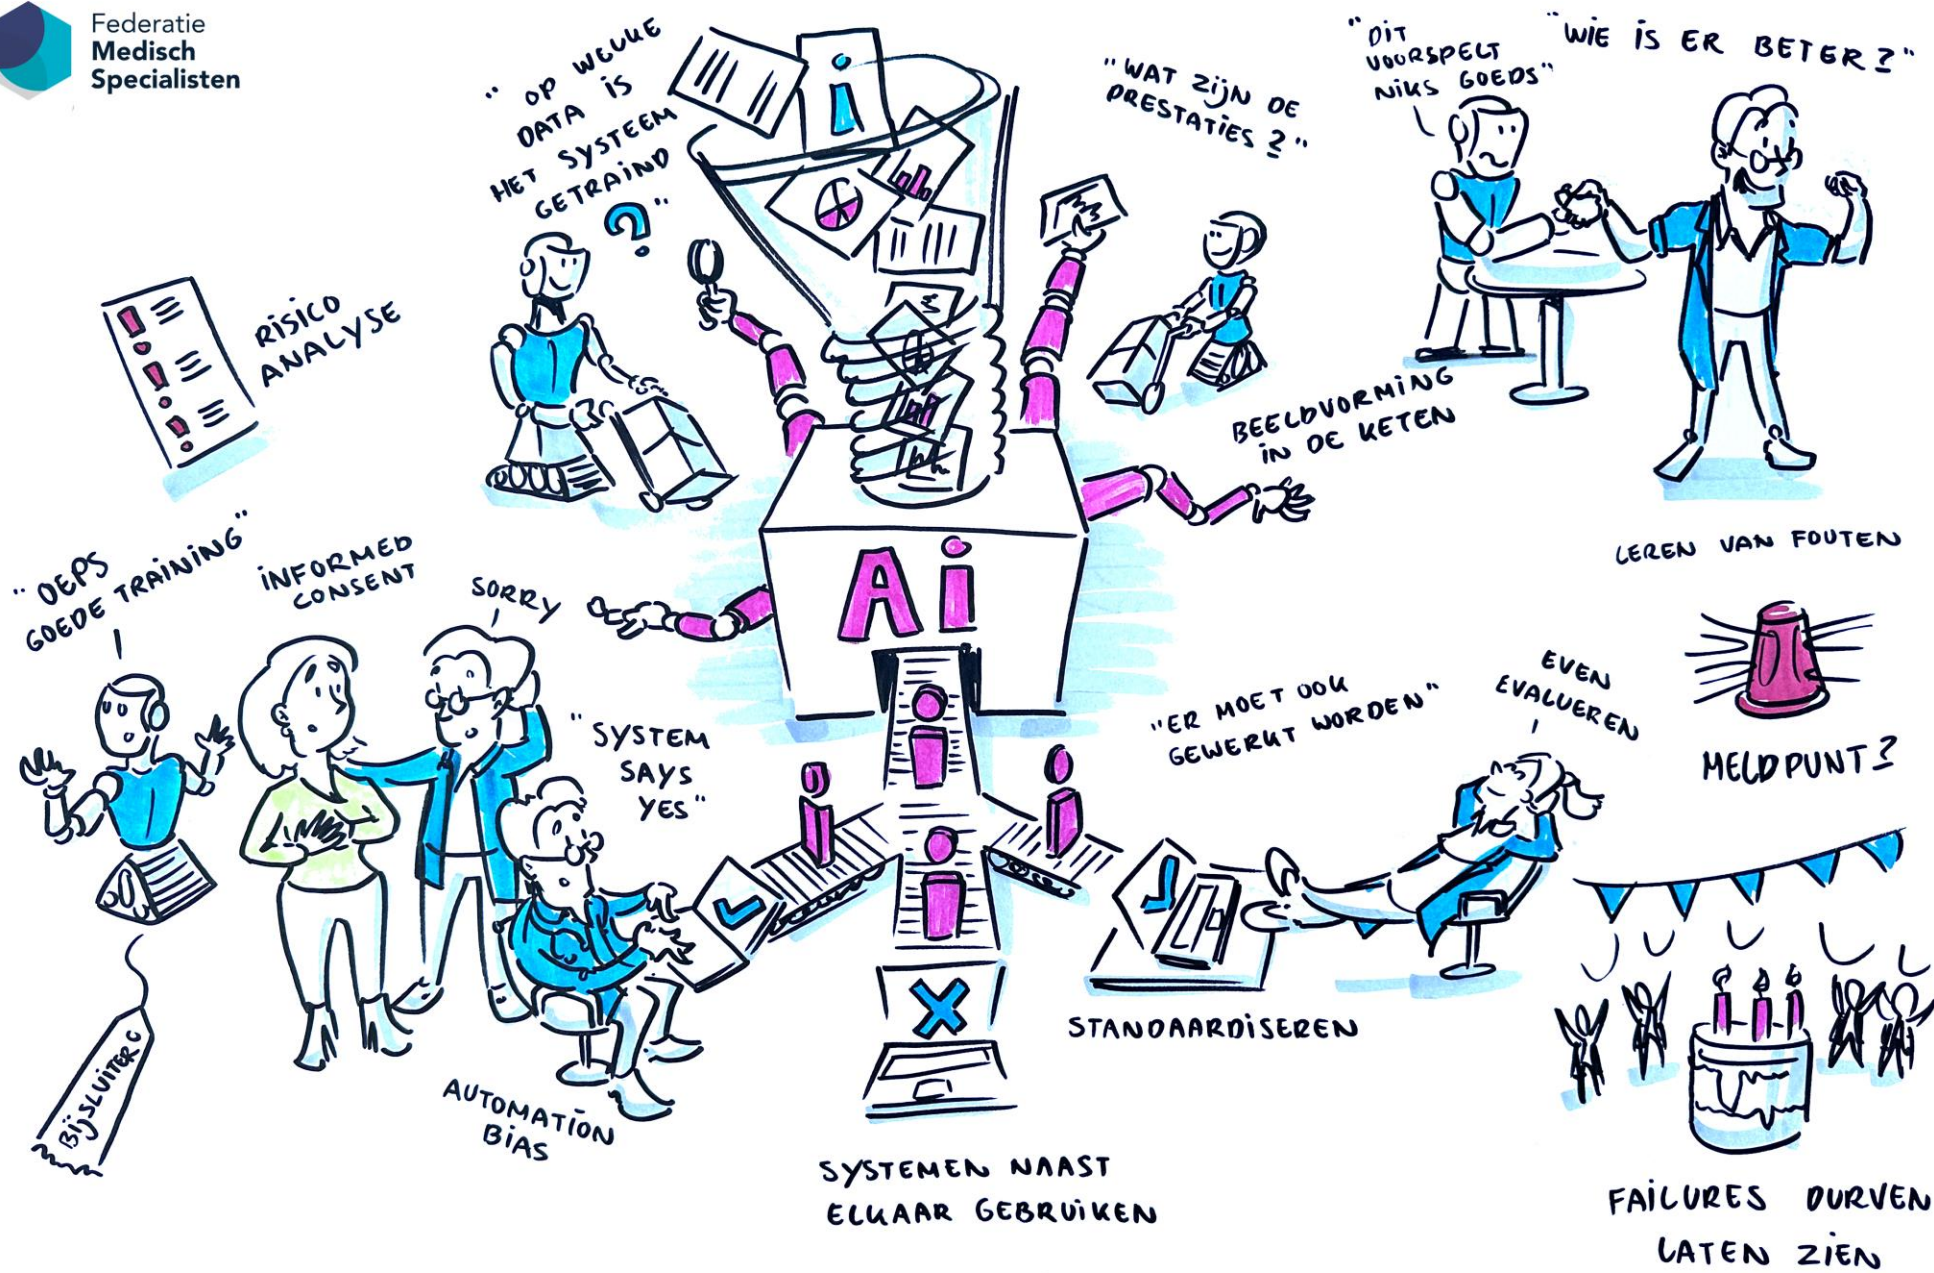 Federatie
Medisch
Specialisten
"OP WELKE
DATA IS
HET SYSTEEM
GETRAIND
?"
i
"WAT ZIJN DE
PRESTATIES?"
"DIT
VOORSPELT
NIKS GOEDS"
"WIE IS ER BETER?"
RISICO
ANALYSE
BEELDVORMING
IN DE KETEN
LEREN VAN FOUTEN
"OEPS
GOEDE TRAINING"
INFORMED
CONSENT
SORRY
Ai
"SYSTEM
SAYS
YES"
i
i
i
i
"ER MOET OOK
GEWERKT WORDEN"
EVEN
EVALUEREN
MELDPUNT?
BIJSLUITER
AUTOMATION
BIAS
STANDAARDISEREN
SYSTEMEN NAAST
ELKAAR GEBRUIKEN
FAILURES DURVEN
LATEN ZIEN